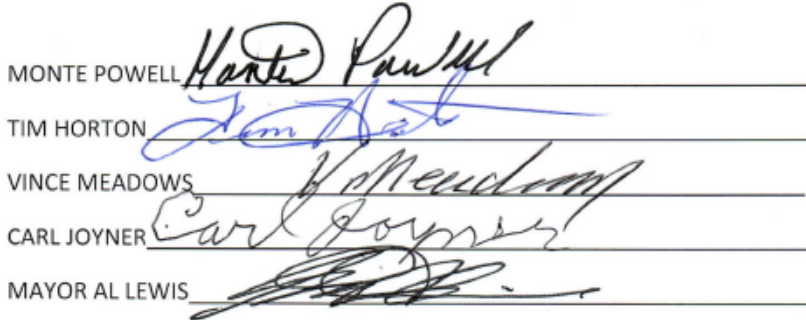 MONTE POWELL Monte Powell
TIM HORTON Tim Horton
VINCE MEADOWS V Meadows
CARL JOYNER Carl Joyner
MAYOR AL LEWIS